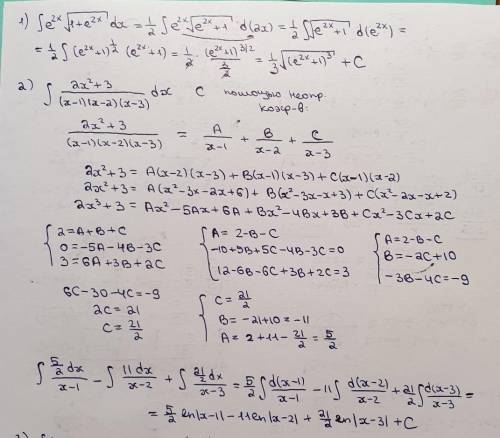 1) ∫e^{2x}√(1+e^{2x}) dx = 1/2 ∫e^{2x}√(e^{2x}+1) d(2x) = 1/2 ∫√(e^{2x}+1) d(e^{2x}) =
= 1/2 ∫(e^{2x}+1)^{1/2} (e^{2x}+1) = 1/2 · (e^{2x}+1)^{3/2} / (3/2) = 1/3 √((e^{2x}+1)^3) + C
2) ∫ (2x²+3)/((x-1)(x-2)(x-3)) dx С помощью неопр. коэф-в:
(2x²+3)/((x-1)(x-2)(x-3)) = A/(x-1) + B/(x-2) + C/(x-3)
2x²+3 = A(x-2)(x-3) + B(x-1)(x-3) + C(x-1)(x-2)
2x²+3 = A(x²-3x-2x+6) + B(x²-3x-x+3) + C(x²-2x-x+2)
2x³+3 = Ax²-5Ax+6A + Bx²-4Bx+3B + Cx²-3Cx+2C
{ 2=A+B+C { A=2-B-C { A=2-B-C
0=-5A-4B-3C -10+9B+5C-4B-3C=0 B=-2C+10
3=6A+3B+2C 12-6B-6C+3B+2C=3 -3B-4C=-9
6C-30-4C=-9 { C=21/2
2C=21 B=-21+10=-11
C=21/2 A=2+11-21/2=5/2
∫ (5/2 dx)/(x-1) - ∫ (11dx)/(x-2) + ∫ (21/2 dx)/(x-3) = 5/2 ∫ d(x-1)/(x-1) - 11∫ d(x-2)/(x-2) + 21/2 ∫ d(x-3)/(x-3) =
= 5/2 ln|x-1| - 11 ln|x-2| + 21/2 ln|x-3| + C